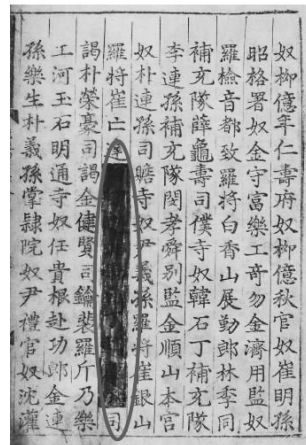 奴柳億年仁壽府奴柳億秋官奴崔明孫
昭格署奴金守富樂工竒勿金濟用監奴
羅檢音都致羅將白香山展勤郎林季同
補充隊薛龜壽司僕寺奴韓石丁補充隊
李連孫補充隊閔孝舜別監金順山本宮
奴朴連孫司贍寺奴尹義孫羅將崔銀山
羅將崔亡達司
謁朴榮豪司謁金健賢司鑰裴羅斤乃樂
工河玉石明通寺奴任貴根赴功郎金連
孫樂生朴義孫掌隷院奴尹禮官奴沈灌